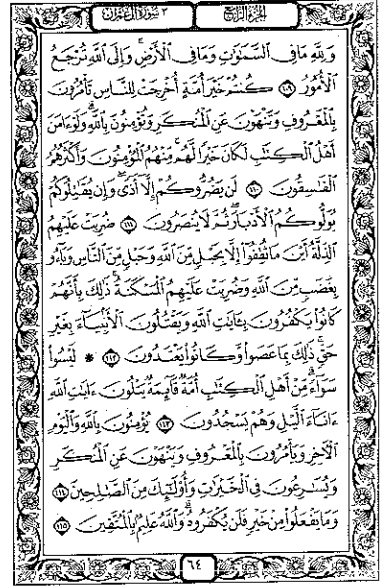 الجزء الرابع
٣ سورة آل عمران
وَلِلَّهِ مَا فِي السَّمَٰوَٰتِ وَمَا فِي الْأَرْضِ وَإِلَى اللَّهِ تُرْجَعُ
الْأُمُورُ ١٠٩ كُنتُمْ خَيْرَ أُمَّةٍ أُخْرِجَتْ لِلنَّاسِ تَأْمُرُونَ
بِالْمَعْرُوفِ وَتَنْهَوْنَ عَنِ الْمُنكَرِ وَتُؤْمِنُونَ بِاللَّهِ وَلَوْ ءَامَنَ
أَهْلُ الْكِتَٰبِ لَكَانَ خَيْرًا لَّهُم مِّنْهُمُ الْمُؤْمِنُونَ وَأَكْثَرُهُمُ
الْفَٰسِقُونَ ١١٠ لَن يَضُرُّوكُمْ إِلَّا أَذًى وَإِن يُقَٰتِلُوكُمْ
يُوَلُّوكُمُ الْأَدْبَارَ ثُمَّ لَا يُنصَرُونَ ١١١ ضُرِبَتْ عَلَيْهِمُ
الذِّلَّةُ أَيْنَ مَا ثُقِفُوا إِلَّا بِحَبْلٍ مِّنَ اللَّهِ وَحَبْلٍ مِّنَ النَّاسِ وَبَآءُو
بِغَضَبٍ مِّنَ اللَّهِ وَضُرِبَتْ عَلَيْهِمُ الْمَسْكَنَةُ ذَٰلِكَ بِأَنَّهُمْ
كَانُوا يَكْفُرُونَ بِـَٔايَٰتِ اللَّهِ وَيَقْتُلُونَ الْأَنبِيَآءَ بِغَيْرِ
حَقٍّ ذَٰلِكَ بِمَا عَصَوا وَّكَانُوا يَعْتَدُونَ ١١٢ * لَيْسُوا
سَوَآءً مِّنْ أَهْلِ الْكِتَٰبِ أُمَّةٌ قَآئِمَةٌ يَتْلُونَ ءَايَٰتِ اللَّهِ
ءَانَآءَ الَّيْلِ وَهُمْ يَسْجُدُونَ ١١٣ يُؤْمِنُونَ بِاللَّهِ وَالْيَوْمِ
الْءَاخِرِ وَيَأْمُرُونَ بِالْمَعْرُوفِ وَيَنْهَوْنَ عَنِ الْمُنكَرِ
وَيُسَٰرِعُونَ فِي الْخَيْرَٰتِ وَأُولَٰٓئِكَ مِنَ الصَّٰلِحِينَ ١١٤
وَمَا يَفْعَلُوا مِنْ خَيْرٍ فَلَن يُكْفَرُوهُ وَاللَّهُ عَلِيمٌ بِالْمُتَّقِينَ ١١٥
٦٤